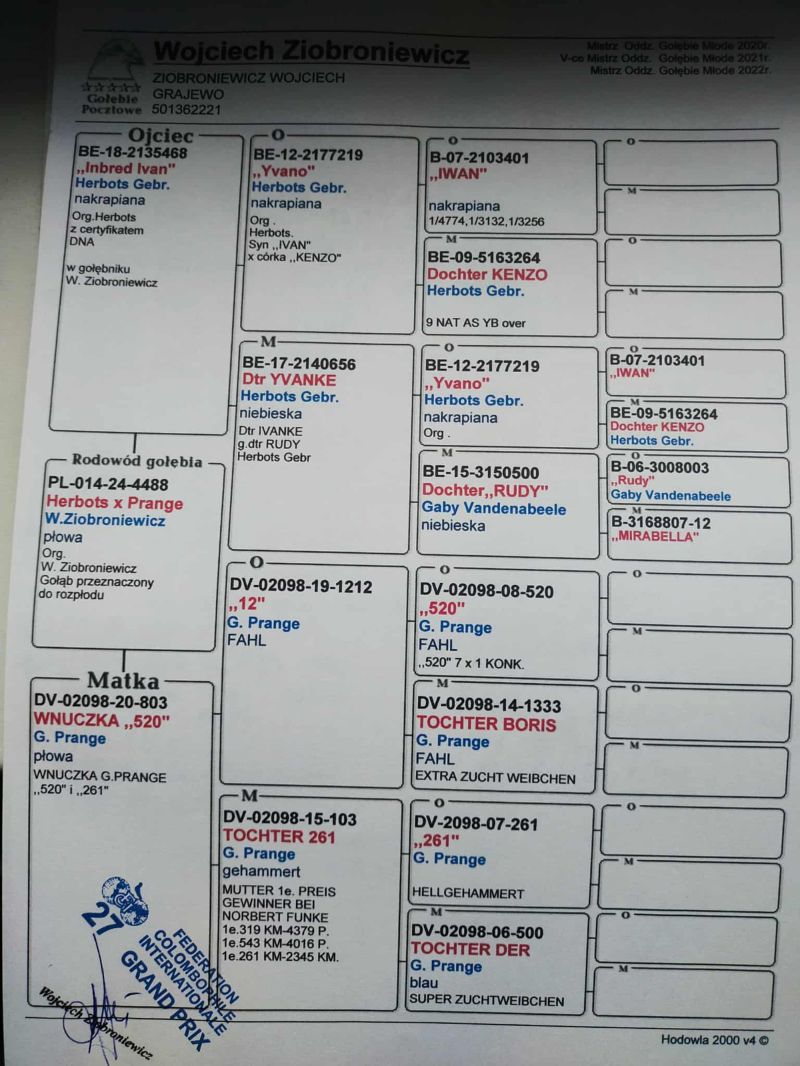 Wojciech Ziobroniewicz
ZIOBRONIEWICZ WOJCIECH
GRAJEWO
501362221
Gołębie
Pocztowe
Mistrz Oddz. Gołębie Młode 2020r.
V-ce Mistrz Oddz. Gołębie Młode 2021r.
Mistrz Oddz. Gołębie Młode 2022r.
Ojciec
BE-18-2135468
„Inbred Ivan"
Herbots Gebr.
nakrapiana
Org.Herbots
z certyfikatem
DNA
w gołębniku
W. Ziobroniewicz
Rodowód gołębia
PL-014-24-4488
Herbots x Prange
W.Ziobroniewicz
płowa
Org.
W. Ziobroniewicz
Gołąb przeznaczony
do rozpłodu
Matka
DV-02098-20-803
WNUCZKA „520"
G. Prange
płowa
WNUCZKA G.PRANGE
„520" i „261"
O
BE-12-2177219
„Yvano"
Herbots Gebr.
nakrapiana
Org .
Herbots.
Syn „IVAN"
x córka „KENZO"
M
BE-17-2140656
Dtr YVANKE
Herbots Gebr.
niebieska
Dtr IVANKE
g.dtr RUDY
Herbots Gebr
O
DV-02098-19-1212
„12"
G. Prange
FAHL
M
DV-02098-15-103
TOCHTER 261
G. Prange
gehammert
MUTTER 1e. PREIS
GEWINNER BEI
NORBERT FUNKE
1e.319 KM-4379 P.
1e.543 KM-4016 P.
1e.261 KM-2345 KM.
O
B-07-2103401
„IWAN"
nakrapiana
1/4774,1/3132,1/3256
M
BE-09-5163264
Dochter KENZO
Herbots Gebr.
9 NAT AS YB over
O
BE-12-2177219
„Yvano"
Herbots Gebr.
nakrapiana
Org .
M
BE-15-3150500
Dochter„RUDY"
Gaby Vandenabeele
niebieska
O
DV-02098-08-520
„520"
G. Prange
FAHL
„520" 7 x 1 KONK.
M
DV-02098-14-1333
TOCHTER BORIS
G. Prange
FAHL
EXTRA ZUCHT WEIBCHEN
O
DV-2098-07-261
„261"
G. Prange
HELLGEHAMMERT
M
DV-02098-06-500
TOCHTER DER
G. Prange
blau
SUPER ZUCHTWEIBCHEN
O
M
O
M
O
B-07-2103401
„IWAN"
M
BE-09-5163264
Dochter KENZO
Herbots Gebr.
O
B-06-3008003
„Rudy"
Gaby Vandenabeele
M
B-3168807-12
„MIRABELLA"
O
M
O
M
O
M
O
M
27
FEDERATION
COLOMBOPHILE
INTERNATIONALE
GRAND PRIX
Wojciech Ziobroniewicz
Hodowla 2000 v4 ©